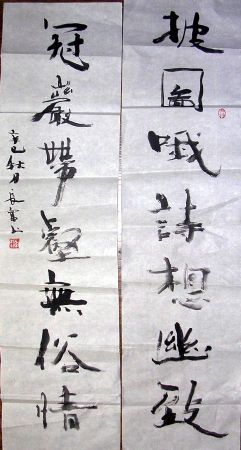 披圖哦詩想幽致
冠巖帶壑無俗情
辛巳秋月